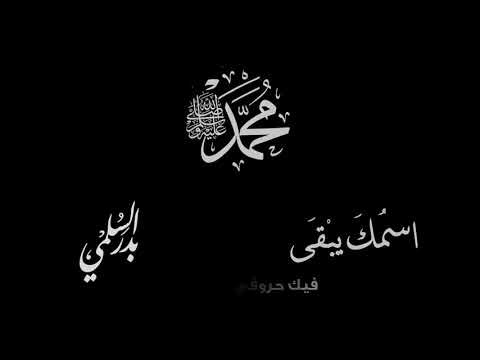 محمد صلى الله عليه وسلم
اسمُكَ يبْقَى
بدر السلمي
فيك حروفي